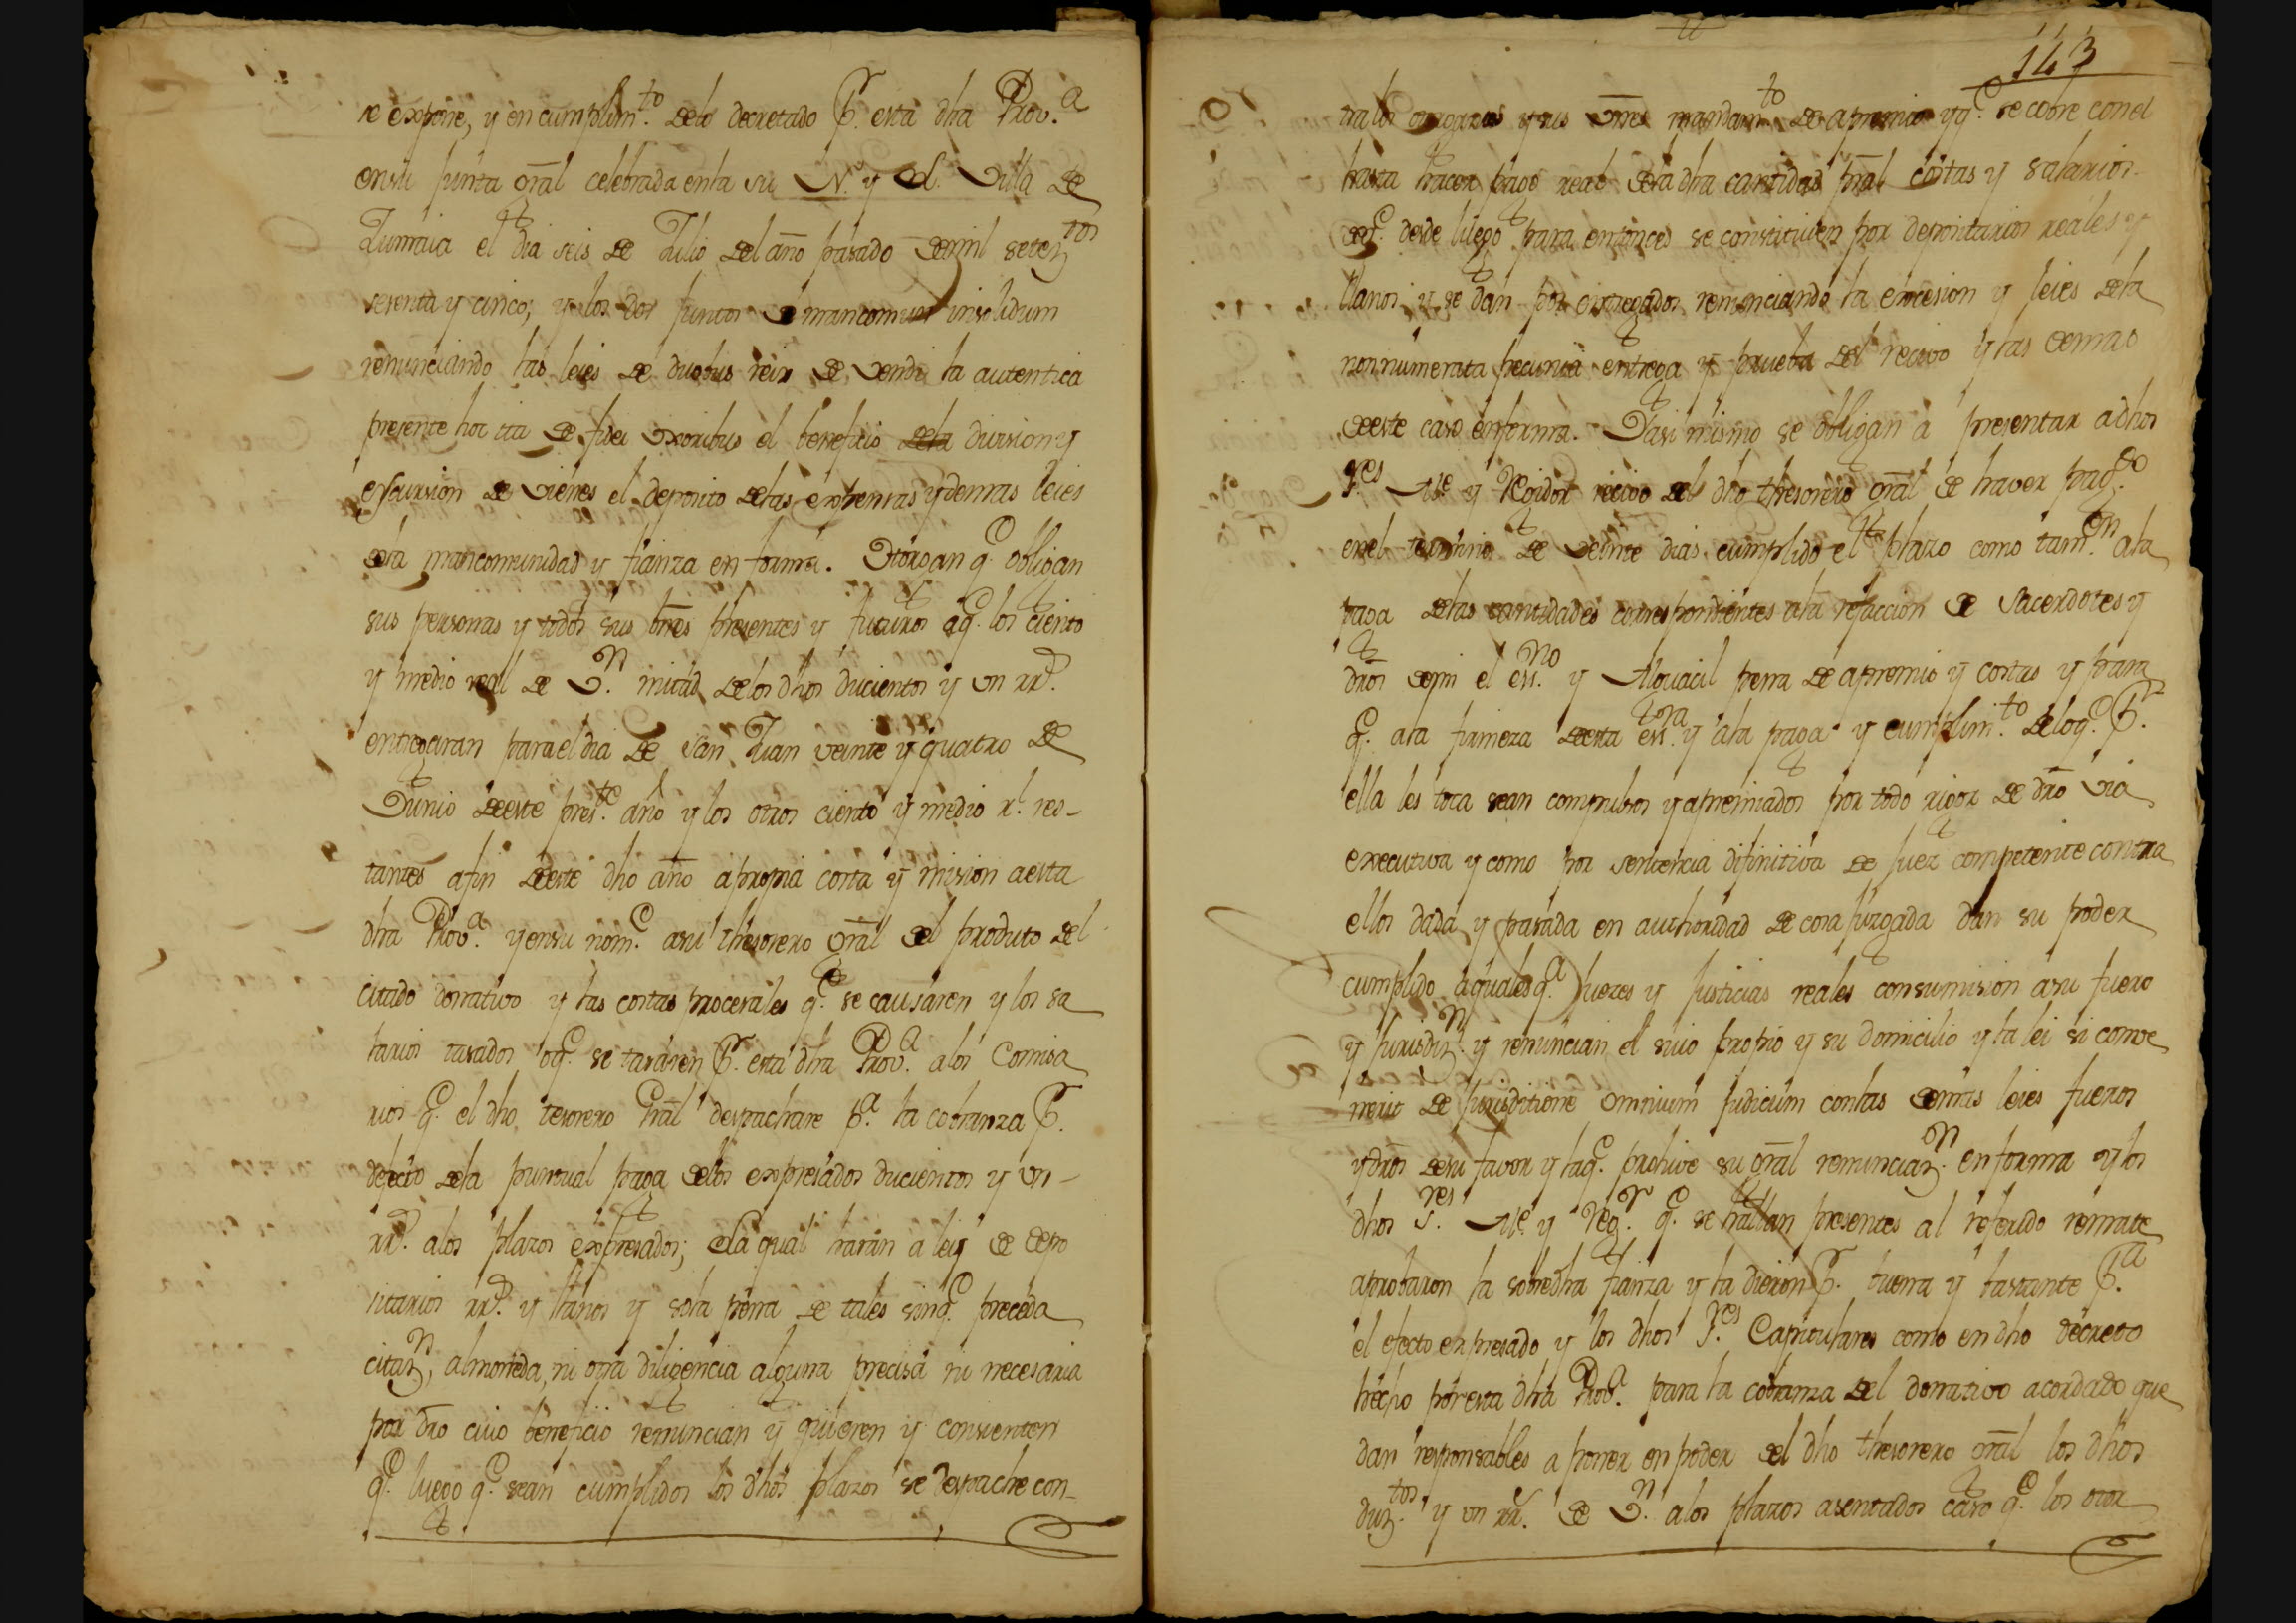 se expone, y en cumplim.to de lo decretado P.r esta dha Prov.a
en su junta gral celebrada en la su N. y L. Villa de
Zumaia el dia seis de Julio del año pasado de mil setez.tos
sesenta y cinco; y los dos juntos de mancomun insolidum
renunciando las leies de duobus reix de vendi la autentica
presente hoc ita de fidei uxoribus el beneficio dela division y
escursion de vienes el deposito delas expensas y demas leies
dela mancomunidad y fianza en forma. Otorgan q.e obligan
sus personas y todos sus bnes presentes y futuros aq.e los ciento
y medio real de V.n mitad delos dhos ducientos y un rr.s
entregaran para el dia de san Juan veinte y quatro de
Junio de este pres.te año y los otros ciento y medio r.l res-
tantes afin de este dho año apropia costa y mision a esta
dha Prov.a y en su nom.e asu thesorero Gral del produto del
citado donativo y las costas procesales q.e se causaren y los sa
larios tasados oq.e se tasaren P.r esta dha Prov.a alos Comisa
rios q.e el dho tesorero Gral despachare p.a la cobranza P.r
defecto dela puntual paga delos expresados ducientos y un-
rr.s alos plazos expresados; dela qual haran a leiy de depo
sitarios rr.s y llanos y sola pena de tales sinq.e preceda
citaz.n, almoneda, ni otra diligencia alguna precisa ni necesaria
por dro cuio beneficio renuncian y quieren y consienten
q.e luego q.e sean cumplidos los dhos plazos se despache con-
143
tra los otorgantes y sus vnes mandam.to de apremio yq.e se cobre con el
hasta hacer pago real dela dha cantidad pral costas y salarios.
deq.e desde luego para entonces se constituien por depositarios reales y
llanos y se dan por entregados renunciando la excesion y leies dela
nonnumerata pecunia entrega y prueba del recivo y las demas
de este caso en forma. Y asi mismo se obligan a presentar a dhos
S.res Al.e y Regidor recivo del dho thesorero gral de haver pag.do
en el termino de veinte dias cumplido el plazo como tam.en ala
paga delas cantidades correspondientes ala refaccion de Sacerdotes y
dros demi el ess.no y Alguacil pena de apremio y costas y para
q.e ala firmeza de esta ess.ra y ala paga y cumplim.to de loq.e P.r
ella les toca sean compulsos y apremiados por todo rigor de dro via
executiva y como por sentencia difinitiva de juez competente contra
ellos dada y pasada en authoridad de cosa juzgada dan su poder
cumplido aqualesq.a Juezes y justicias reales consumision asu fuero
y jurisdiz.n y renuncian el suio propio y su domicilio y la lei si conve
nerit de jurisditione omnium judicum conlas demas leies fueros
y dros desu favor y laq.e prohive su gral renunciaz.n en forma y los
dhos S.res Al.e y Reg.r q.e se hallan presentes al referido remate
aprobaron la sobredha fianza y la dieron P.r buena y bastante P.a
el efecto expresado y los dhos S.res Capitulares como en dho decreto
hecho por esta dha Prov.a para la cobranza del donativo acordado que
dan responsables a poner en poder del dho thesorero gral los dhos
duz.tos y un rr.s de V.n alos plazos asentados caso q.e los otor